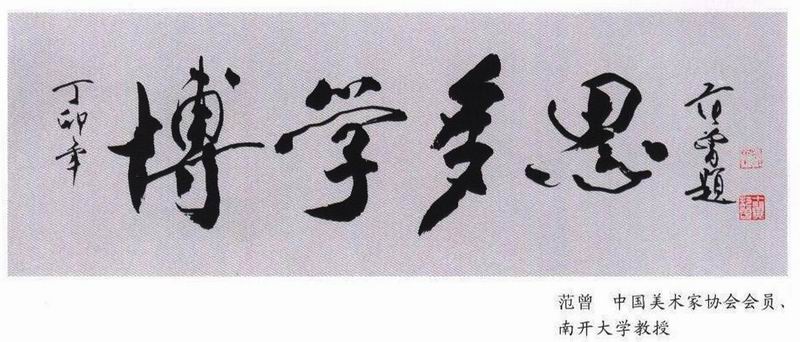 丁卯年
博学多思
范曾题
范曾　中国美术家协会会员、
南开大学教授